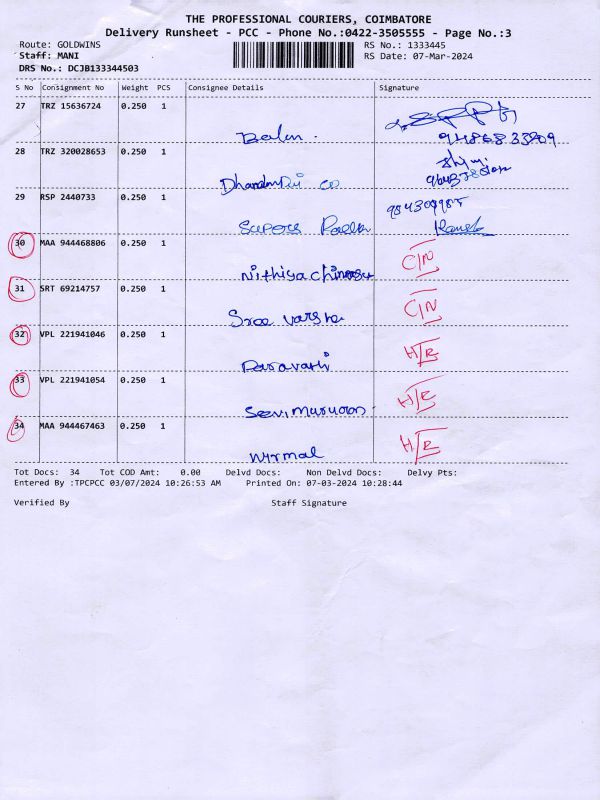 THE PROFESSIONAL COURIERS, COIMBATORE
Delivery Runsheet - PCC - Phone No.:0422-3505555 - Page No.:3
Route: GOLDWINS RS No.: 1333445
Staff: MANI RS Date: 07-Mar-2024
DRS No.: DCJB133344503
S No Consignment No Weight PCS Consignee Details Signature
27 TRZ 15636724 0.250 1
Balan. 9486833909
28 TRZ 320028653 0.250 1
co
29 RSP 2440733 0.250 1
30 MAA 944468806 0.250 1 C/N
Nithiya
31 SRT 69214757 0.250 1 C/N
Sree varsha
32 VPL 221941046 0.250 1 H/R
33 VPL 221941054 0.250 1 H/R
34 MAA 944467463 0.250 1 H/R
Nirmal
Tot Docs: 34 Tot COD Amt: 0.00 Delvd Docs: Non Delvd Docs: Delvy Pts:
Entered By :TPCPCC 03/07/2024 10:26:53 AM Printed On: 07-03-2024 10:28:44
Verified By Staff Signature